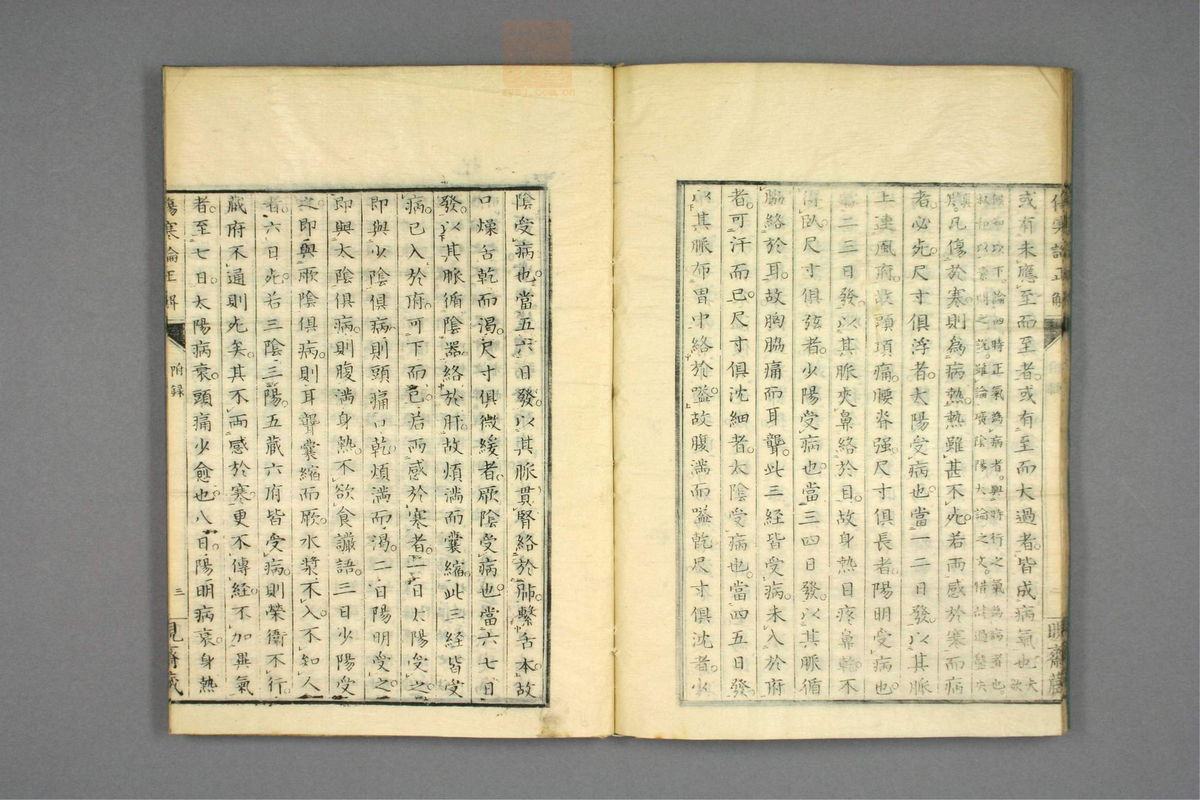 或有未應至而至者或有至而太過者皆成病氣也
膈凡傷於寒則為病熱熱雖甚不死若兩感於寒而病
者必死尺寸俱浮者太陽受病也當一二日發以其脈
上連風府故頭項痛腰脊强尺寸俱長者陽明受病也
二三日發以其脈夾鼻絡於目故身熱目疼鼻乾不
得臥尺寸俱弦者少陽受病也當三四日發以其脈循
脇絡於耳故胸脇痛而耳聾此三經皆受病未入於府
者可汗而已尺寸俱沈細者太陰受病也當四五日發
以其脈布胃中絡於嗌故腹滿而嗌乾尺寸俱沈者少
陰受病也當五六日發以其脈貫腎絡於肺繫舌本故
口燥舌乾而渴尺寸俱微緩者厥陰受病也當六七日
發以其脈循陰器絡於肝故煩滿而囊縮此三經皆受
病已入於府可下而已若兩感於寒者一日太陽受之
即與少陰俱病則頭痛口乾煩滿而渴二日陽明受之
即與太陰俱病則腹滿身熱不欲食讝語三日少陽受
之即與厥陰俱病則耳聾囊縮而厥水漿不入不知人
者六日死若三陰三陽五藏六府皆受病則榮衛不行
藏府不通則死矣其不兩感於寒更不傳經不加異氣
者至七日太陽病衰頭痛少愈也八日陽明病衰身熱
傷寒論正解
附錄
三